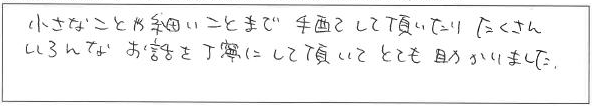 小さなことや細いことまで手配して頂いたり たくさん
いろんな お話を丁寧にして頂いて とても助かりました.